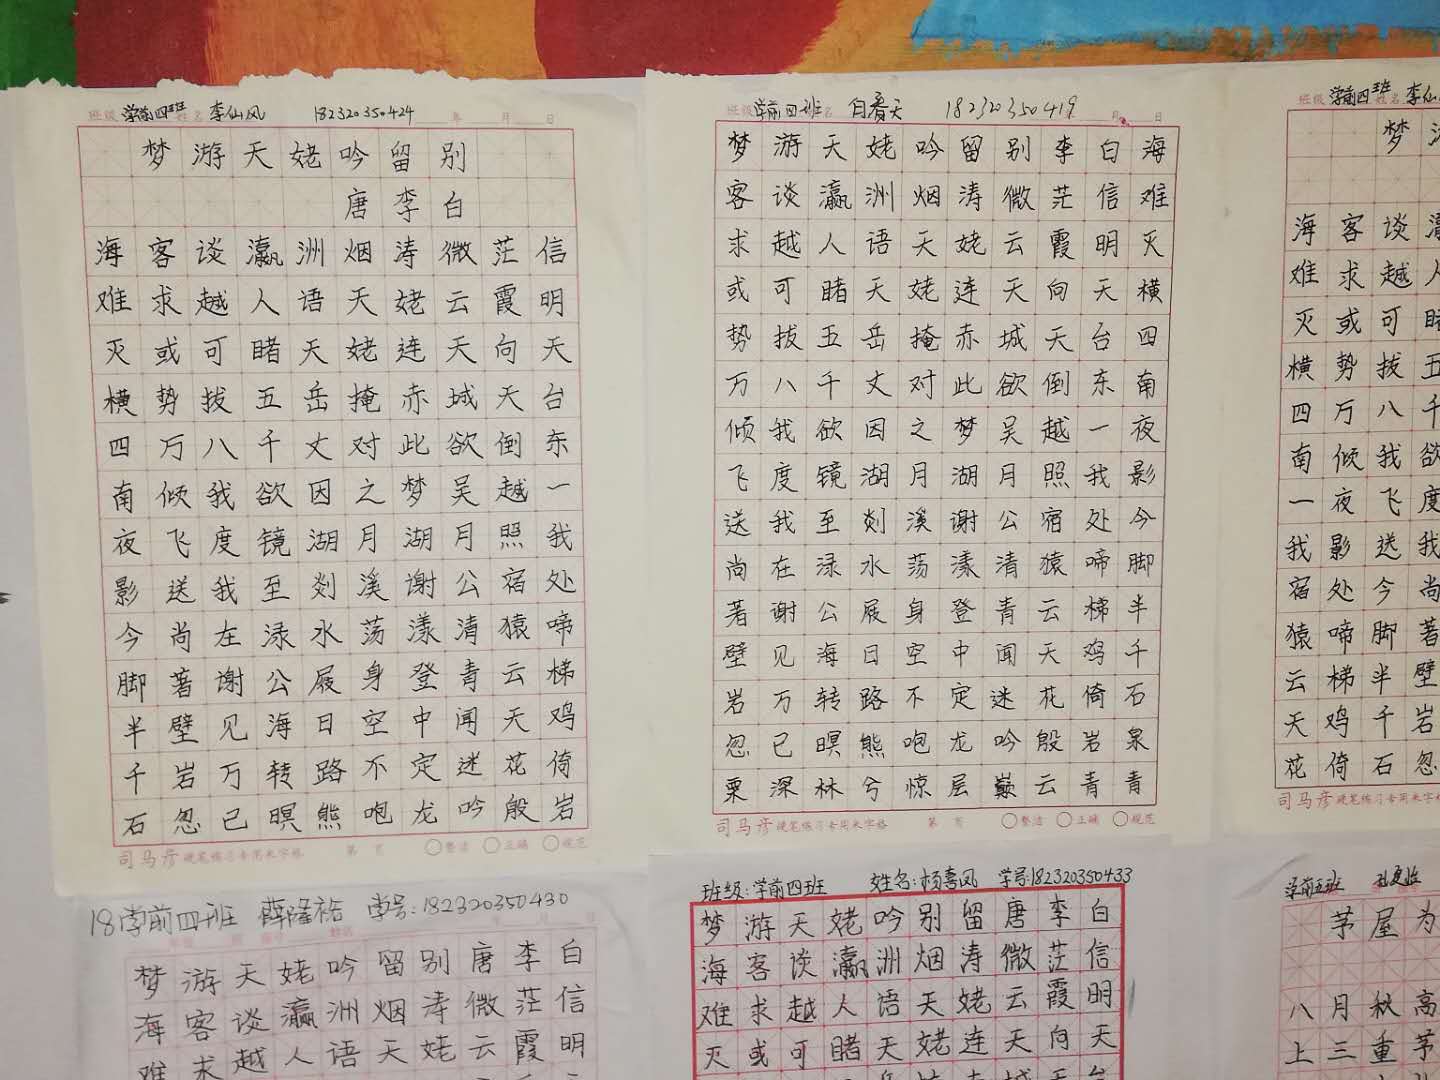 班级 学前四班 姓名 李仙凤 18232035０424 年 月 日
梦游天姥吟留别
唐李白
海客谈瀛洲烟涛微茫信
难求越人语天姥云霞明
灭或可睹天姥连天向天
横势拔五岳掩赤城天台
四万八千丈对此欲倒东
南倾我欲因之梦吴越一
夜飞度镜湖月湖月照我
影送我至剡溪谢公宿处
今尚在渌水荡漾清猿啼
脚著谢公屐身登青云梯
半壁见海日空中闻天鸡
千岩万转路不定迷花倚
石忽已暝熊咆龙吟殷岩
司马彦 硬笔练习专用米字格 第 页 整洁 正确 规范
班级 学前四班 名 白春天 182320350419 月 日
梦游天姥吟留别李白海
客谈瀛洲烟涛微茫信难
求越人语天姥云霞明灭
或可睹天姥连天向天横
势拔五岳掩赤城天台四
万八千丈对此欲倒东南
倾我欲因之梦吴越一夜
飞度镜湖月湖月照我影
送我至剡溪谢公宿处今
尚在渌水荡漾清猿啼脚
著谢公屐身登青云梯半
壁见海日空中闻天鸡千
岩万转路不定迷花倚石
忽已暝熊咆龙吟殷岩泉
栗深林兮惊层巅云青青
司马彦 硬笔练习专用米字格 第 页 整洁 正确 规范
班级 学前四班 姓名 李仙
梦
海客谈
难求越人
灭或可睹
横势拔五
四万八千
南倾我欲
一夜飞度
我影送我
宿处今尚
猿啼脚著
云梯半壁
天鸡千岩
花倚石忽
司马彦 硬笔练习专用米字格
18学前四班 薛隆裕 学号:182320350430
梦游天姥吟留别唐李白
海客谈瀛洲烟涛微茫信
难求越人语天姥云霞明
班级:学前四班 姓名:杨喜凤 学号:182320350433
梦游天姥吟别留唐李白
海客谈瀛洲烟涛微茫信
难求越人语天姥云霞明
灭或可睹天姥连天向天
学前五班
茅屋为
八月秋高
上三重茅